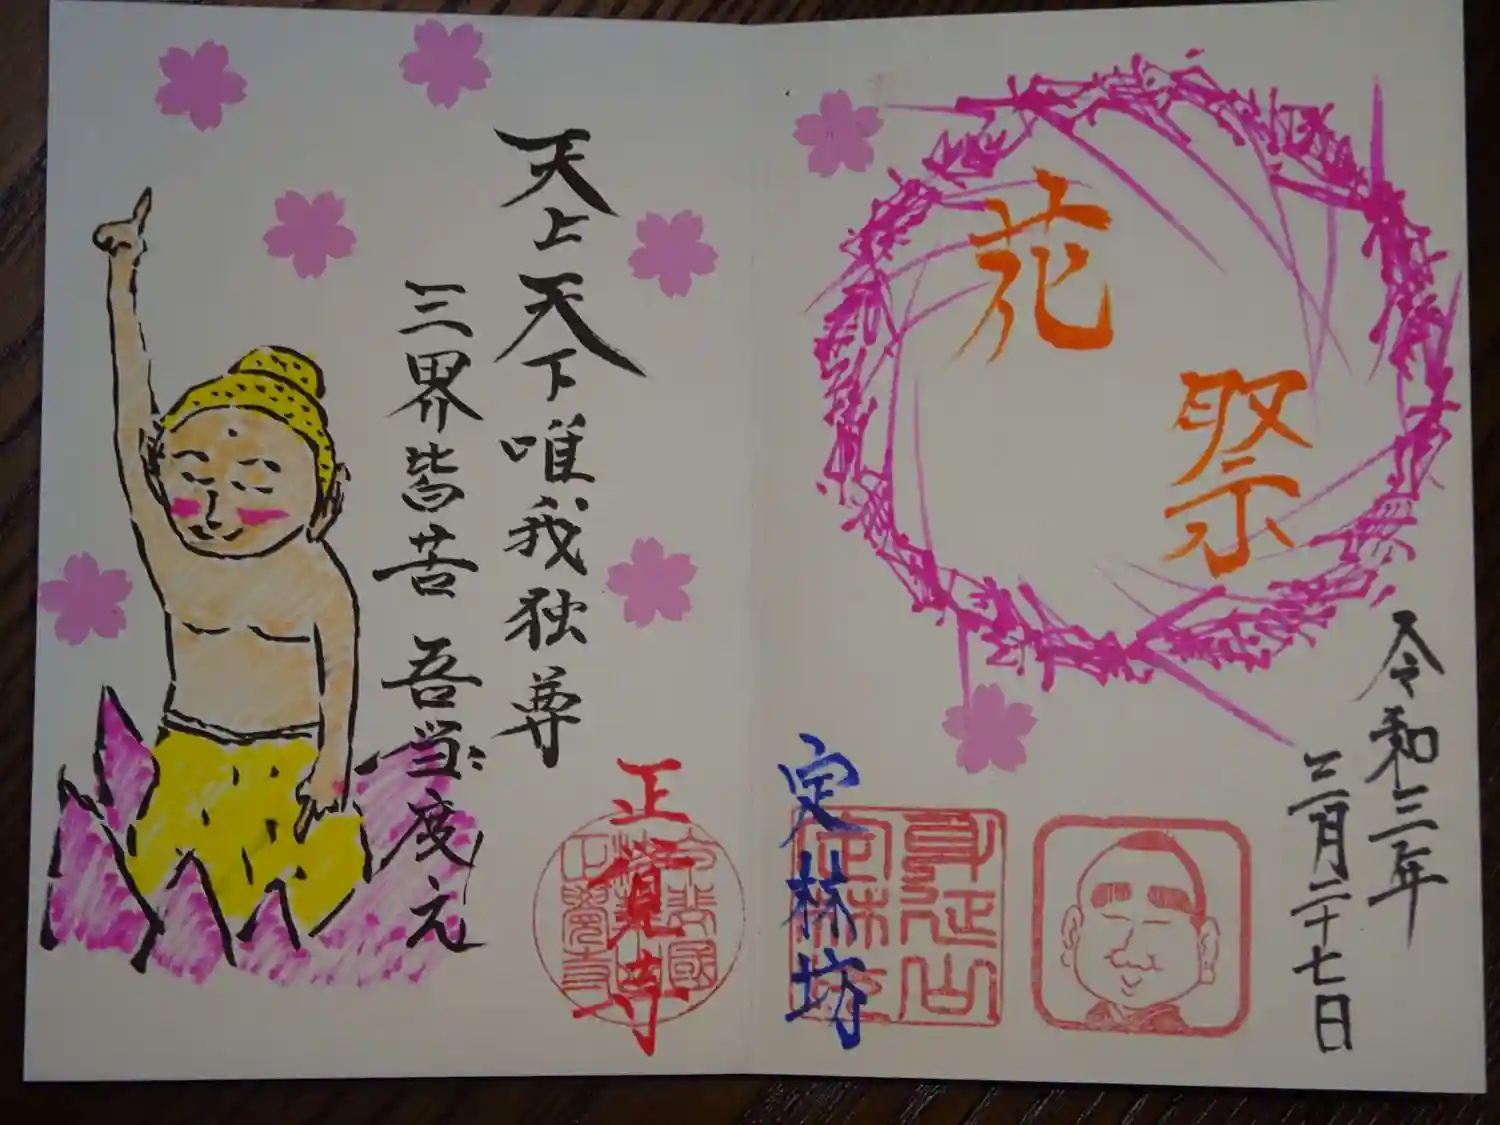 花
祭
令和三年
三月二十七日
身延山
定林坊
定林坊
天上天下唯我独尊
三界皆苦 吾当度之
正覚寺